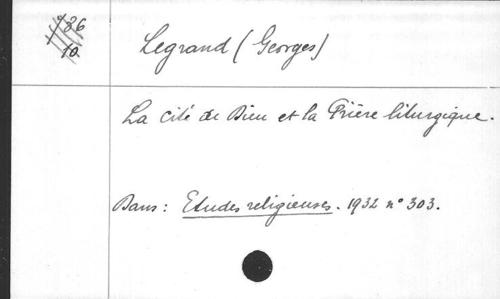 Legrand (Georges)
La cité de Dieu et la Prière liturgique.
Dans: Etudes religieuses. 1932 n° 303.